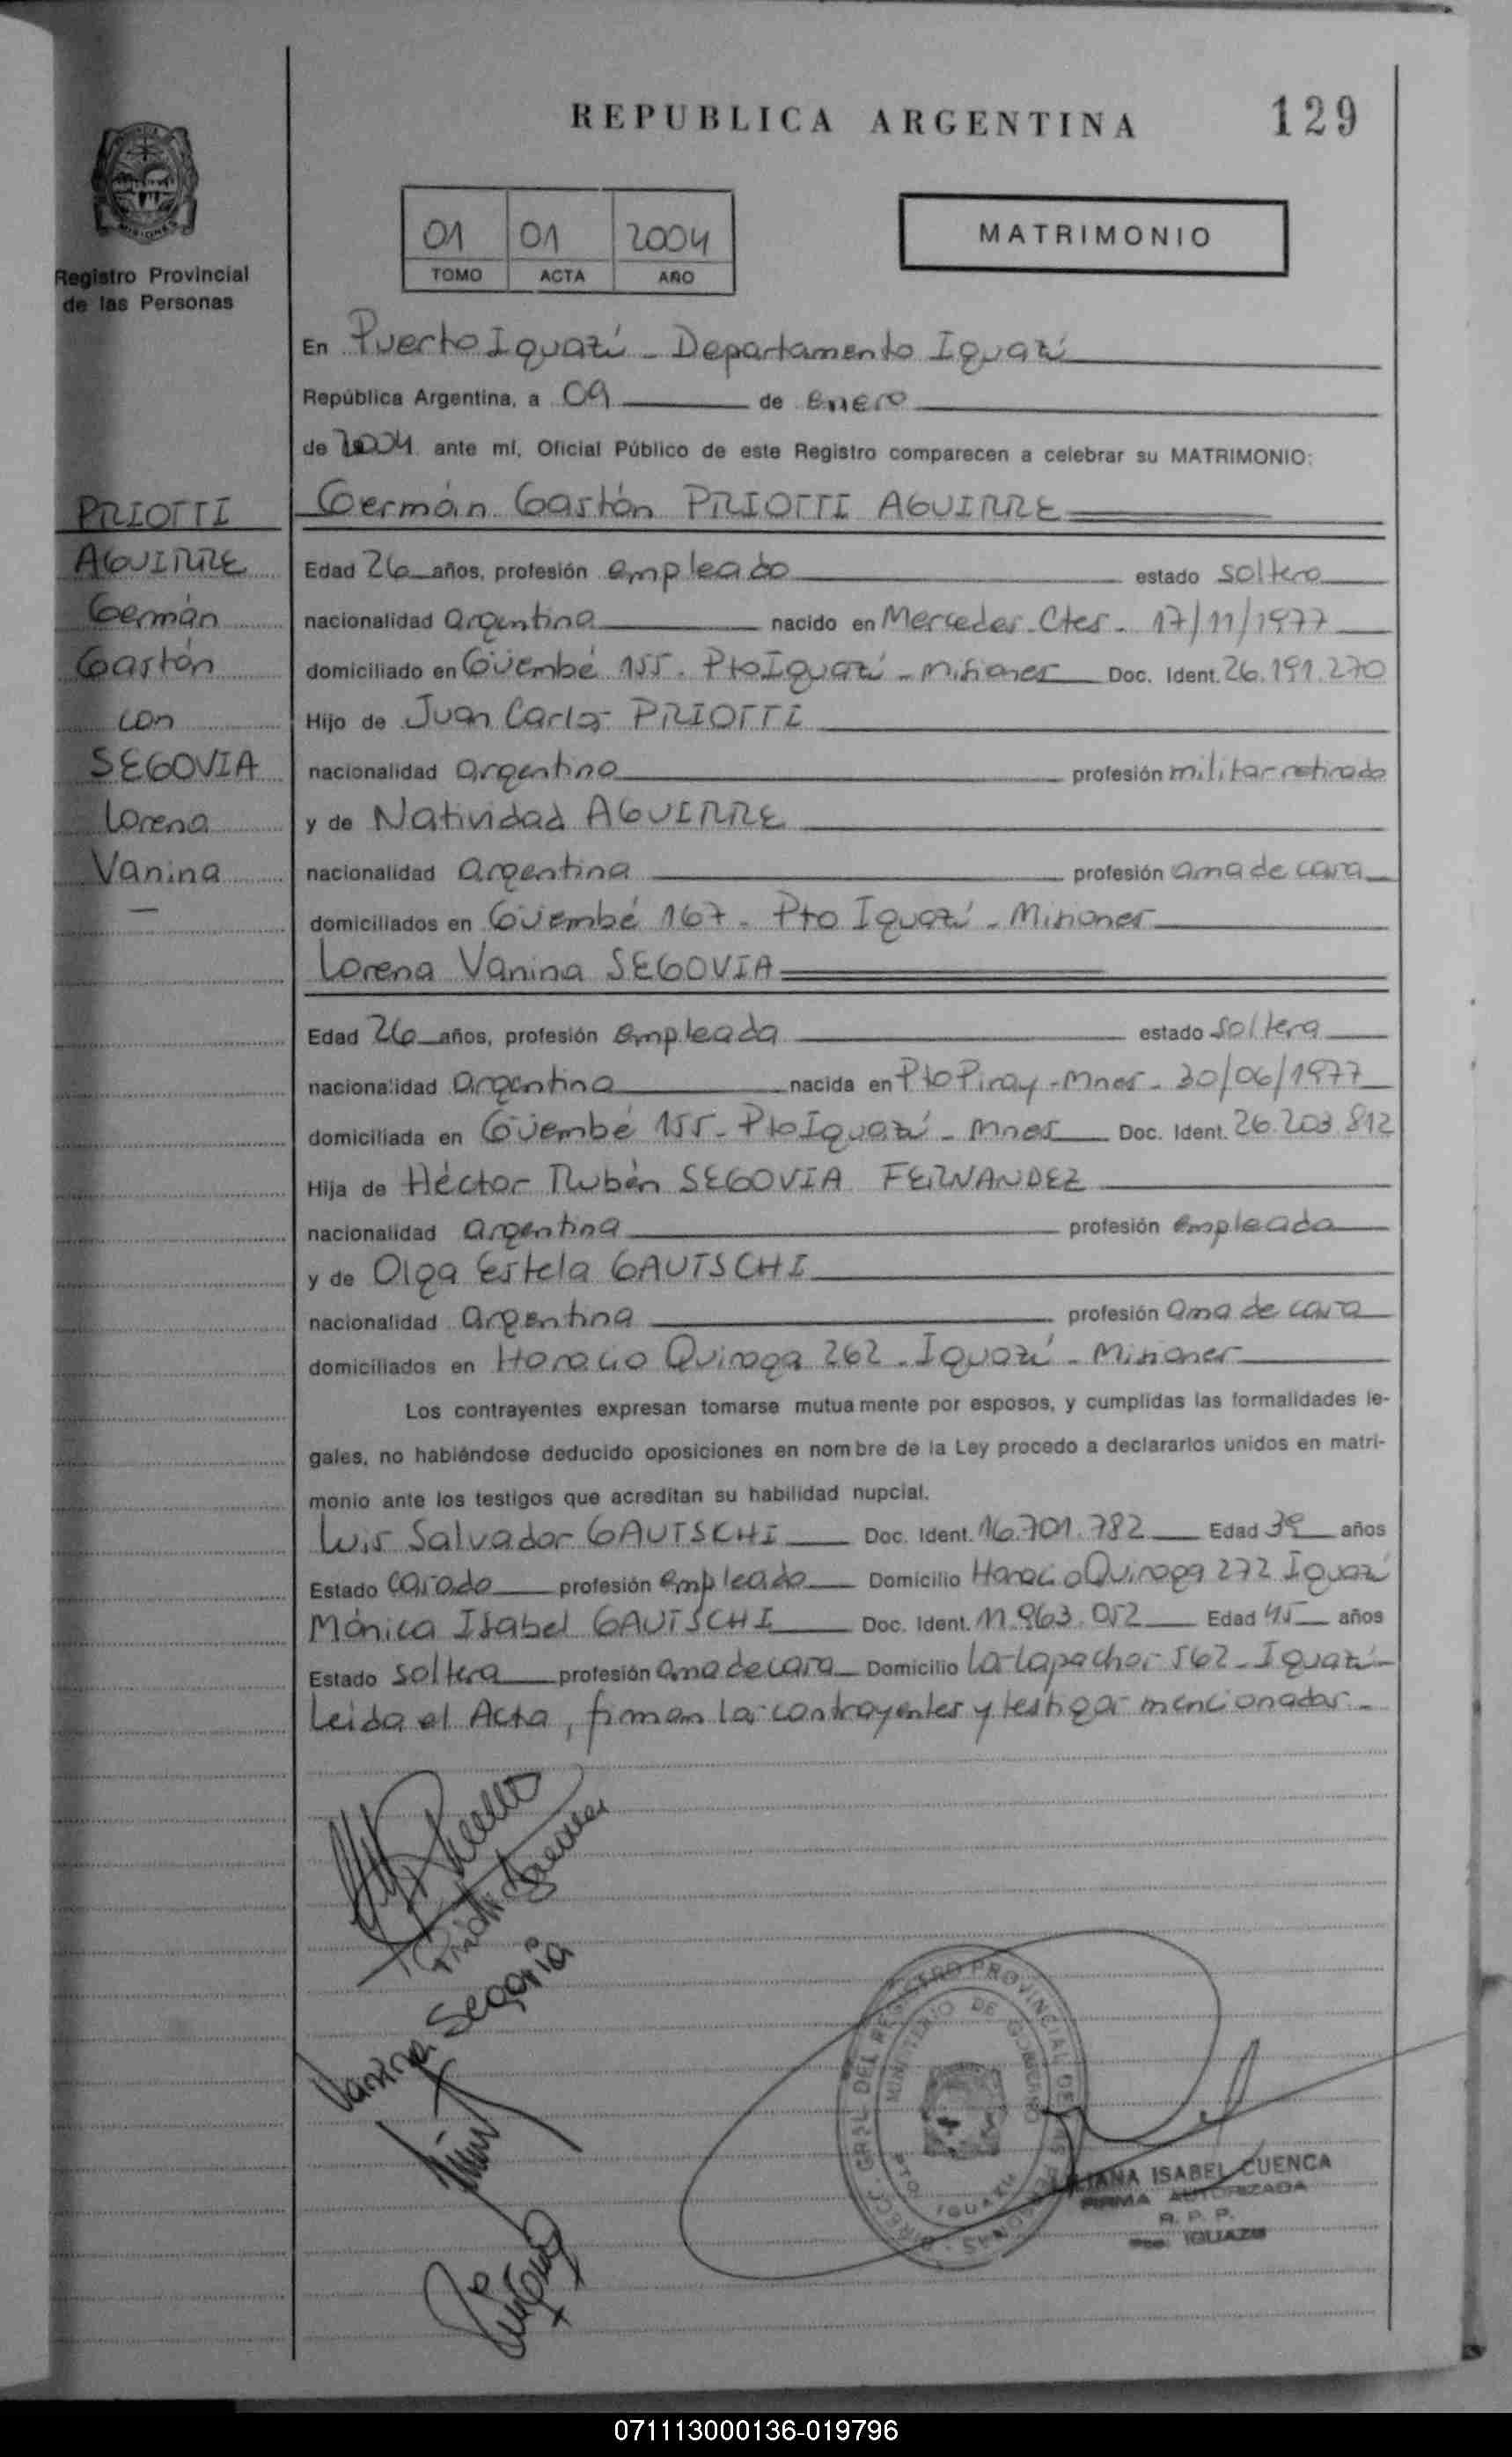 REPUBLICA ARGENTINA
129
MISIONES
Registro Provincial
de las Personas
01 01 2004
TOMO ACTA AÑO
MATRIMONIO
En Puerto Iguazú - Departamento Iguazú
República Argentina, a 09 de enero
de 2004 ante mí, Oficial Público de este Registro comparecen a celebrar su MATRIMONIO:
PRIOTTI
AGUIRRE
Germán
Gastón
con
SEGOVIA
Lorena
Vanina
Germán Gastón PRIOTTI AGUIRRE
Edad 26 años, profesión empleado estado soltero
nacionalidad argentina nacido en Mercedes - Ctes - 17/11/1977
domiciliado en Güembé 155 - Pto Iguazú - Misiones Doc. Ident. 26.191.270
Hijo de Juan Carlos PRIOTTI
nacionalidad argentina profesión militar retirado
y de Natividad AGUIRRE
nacionalidad argentina profesión ama de casa
domiciliados en Güembé 167 - Pto Iguazú - Misiones
Lorena Vanina SEGOVIA
Edad 26 años, profesión empleada estado soltera
nacionalidad argentina nacida en Pto Piray - Mnes - 30/06/1977
domiciliada en Güembé 155 - Pto Iguazú - Mnes Doc. Ident. 26.203.812
Hija de Héctor Rubén SEGOVIA FERNANDEZ
nacionalidad argentina profesión empleado
y de Olga Estela GAUTSCHI
nacionalidad argentina profesión ama de casa
domiciliados en Horacio Quiroga 262 - Iguazú - Misiones
Los contrayentes expresan tomarse mutuamente por esposos, y cumplidas las formalidades le-
gales, no habiéndose deducido oposiciones en nombre de la Ley procedo a declararlos unidos en matri-
monio ante los testigos que acreditan su habilidad nupcial.
Luis Salvador GAUTSCHI Doc. Ident. 16.701.782 Edad 39 años
Estado casado profesión empleado Domicilio Horacio Quiroga 272 Iguazú
Mónica Isabel GAUTSCHI Doc. Ident. 11.963.052 Edad 45 años
Estado soltera profesión ama de casa Domicilio Los Lapachos 562 - Iguazú -
Leída el Acta, firman los contrayentes y testigos mencionados -
Priotti Aguirre
Vanina Segovia
DIRECC. GRAL. DEL REGISTRO PROVINCIAL DE LAS PERSONAS
MINISTERIO DE GOBIERNO
PTO. IGUAZU
LILIANA ISABEL CUENCA
FIRMA AUTORIZADA
R. P. P.
Pto. IGUAZU
071113000136-019796